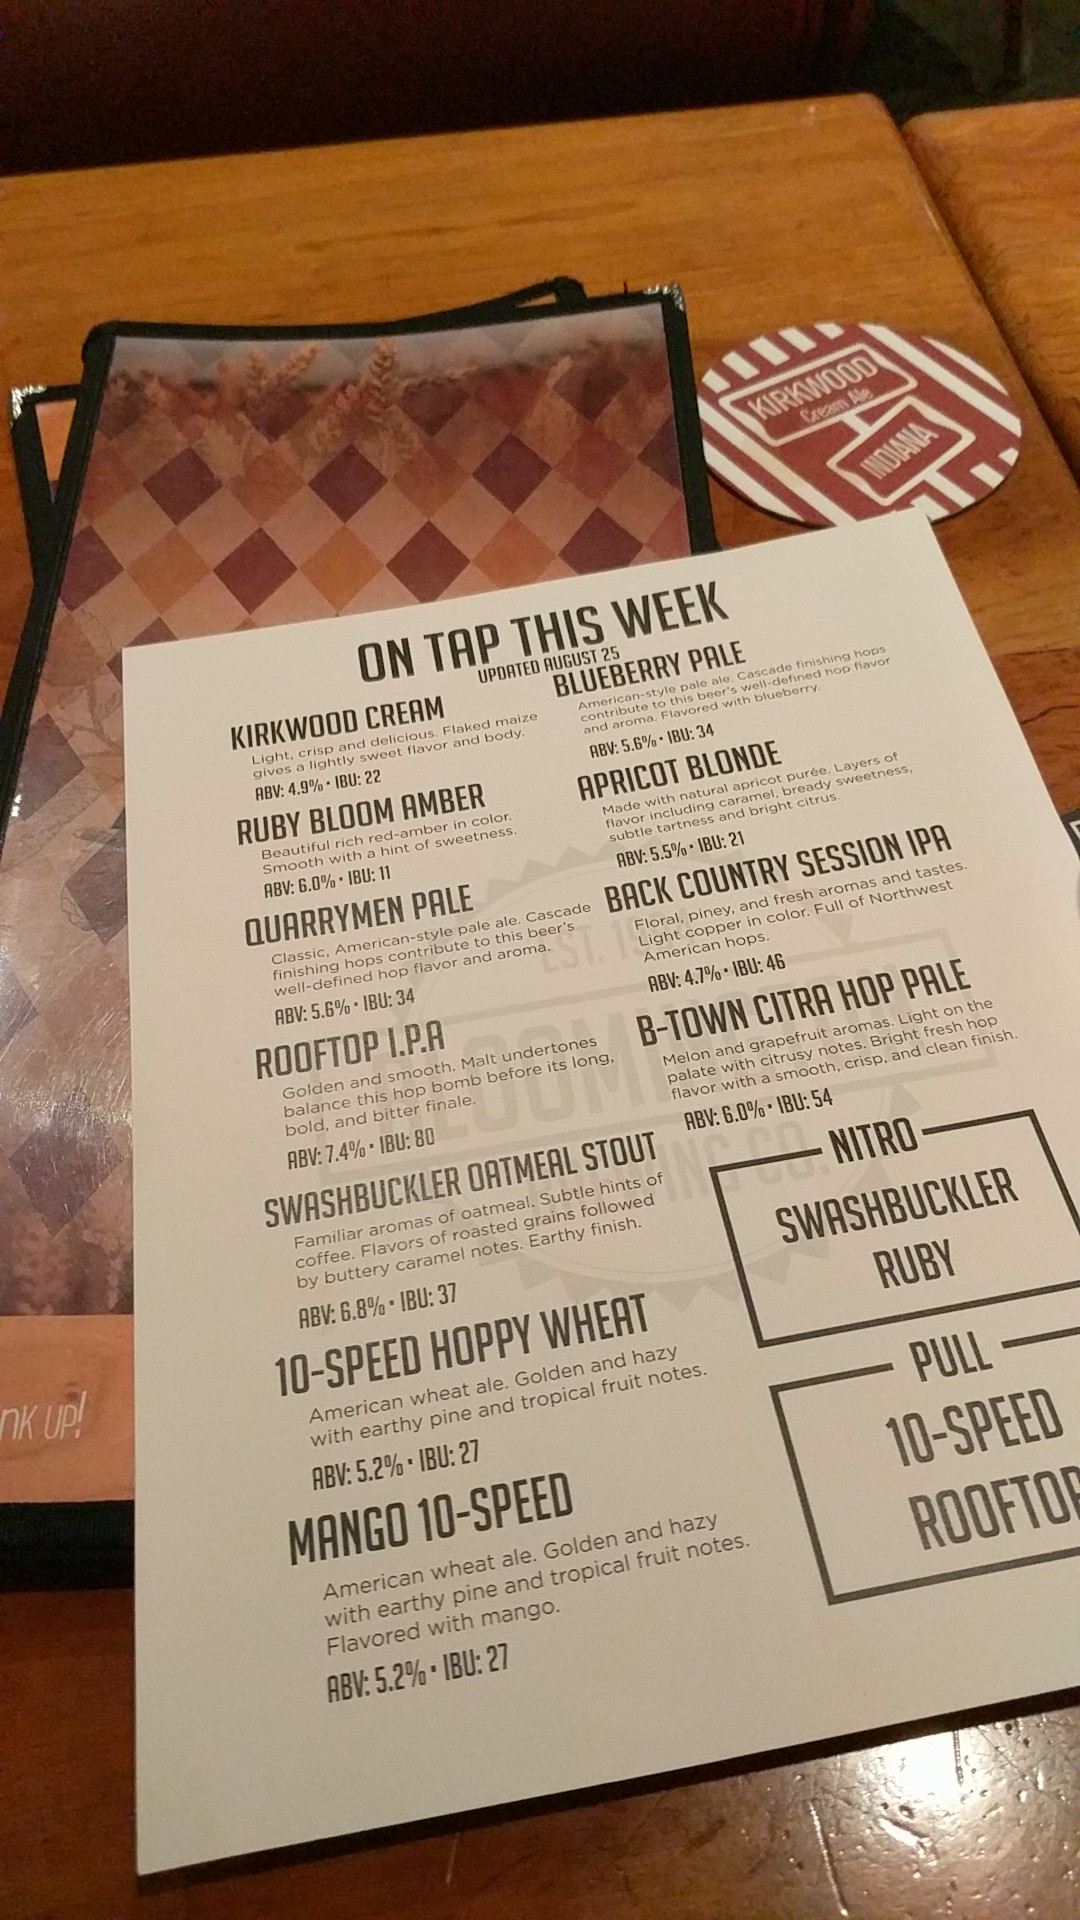 KIRKWOOD
Cream Ale
INDIANA
ON TAP THIS WEEK
UPDATED AUGUST 25
KIRKWOOD CREAM
Light, crisp and delicious. Flaked maize
gives a lightly sweet flavor and body.
ABV: 4.9% • IBU: 22
RUBY BLOOM AMBER
Beautiful rich red-amber in color.
Smooth with a hint of sweetness.
ABV: 6.0% • IBU: 11
QUARRYMEN PALE
Classic, American-style pale ale. Cascade
finishing hops contribute to this beer's
well-defined hop flavor and aroma.
ABV: 5.6% • IBU: 34
ROOFTOP I.P.A
Golden and smooth. Malt undertones
balance this hop bomb before its long,
bold, and bitter finale.
ABV: 7.4% • IBU: 80
SWASHBUCKLER OATMEAL STOUT
Familiar aromas of oatmeal. Subtle hints of
coffee. Flavors of roasted grains followed
by buttery caramel notes. Earthy finish.
ABV: 6.8% • IBU: 37
10-SPEED HOPPY WHEAT
American wheat ale. Golden and hazy
with earthy pine and tropical fruit notes.
ABV: 5.2% • IBU: 27
MANGO 10-SPEED
American wheat ale. Golden and hazy
with earthy pine and tropical fruit notes.
Flavored with mango.
ABV: 5.2% • IBU: 27
BLUEBERRY PALE
American-style pale ale. Cascade finishing hops
contribute to this beer's well-defined hop flavor
and aroma. Flavored with blueberry.
ABV: 5.6% • IBU: 34
APRICOT BLONDE
Made with natural apricot purée. Layers of
flavor including caramel, bready sweetness,
subtle tartness and bright citrus.
ABV: 5.5% • IBU: 21
BACK COUNTRY SESSION IPA
Floral, piney, and fresh aromas and tastes.
Light copper in color. Full of Northwest
American hops.
ABV: 4.7% • IBU: 46
B-TOWN CITRA HOP PALE
Melon and grapefruit aromas. Light on the
palate with citrusy notes. Bright fresh hop
flavor with a smooth, crisp, and clean finish.
ABV: 6.0% • IBU: 54
NITRO
SWASHBUCKLER
RUBY
PULL
10-SPEED
ROOFTOP
EST. 19
CO.
UP!